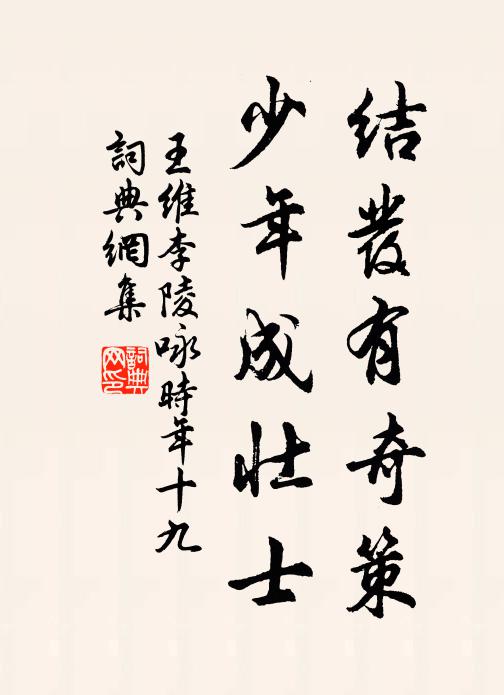 结發有奇策
少年成壮士
王維李陵咏時年十九
詞典網集
詞典
网印